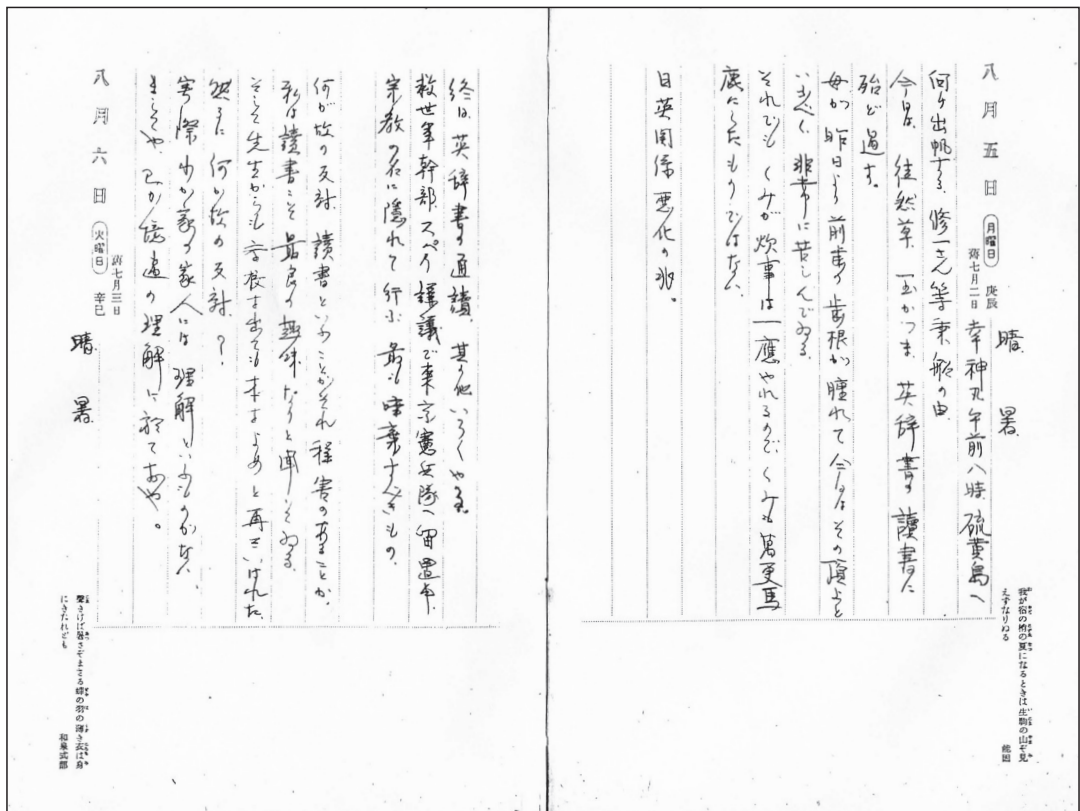 八月五日 月曜日 庚辰 舊七月二日 晴 暑
幸神丸午前八時硫黄島へ
向け出帆する。修一さん等乗船の由
今日は、徒然草、玉かつま、英辞書の讀書に
殆ど過す。
母が昨日より前歯の歯根が腫れて今日はその頂上と
いふべく、非常に苦しんでゐる。
それでもくみが炊事は一應やれるので、くみも萬更馬
鹿にしたものではない。
日英関係悪化の兆。
我が宿の梢の夏になるときは生駒の山ぞ見
えずなりぬる 能因
八月六日 火曜日 舊七月三日 辛巳 晴 暑
終日、英辞書の通讀、其の他いろくやる。
救世軍幹部、スパイ謀議で東京憲兵隊へ留置中、
宗教の名に隠れて行ふ、最も唾棄すべきもの。
何が故の反対、讀書といふことがそれ程害のあることか。
私は讀書こそ最良の趣味なりと軍してゐる。
そして先生からも学校を出ても本をよめと再三いはれた。
然るに何が故の反対。?
実際わが家の家人には理解といふものがない。
聲きけば暑さぞまさる蟬の羽の薄き衣は身
にきたれども 和泉式部